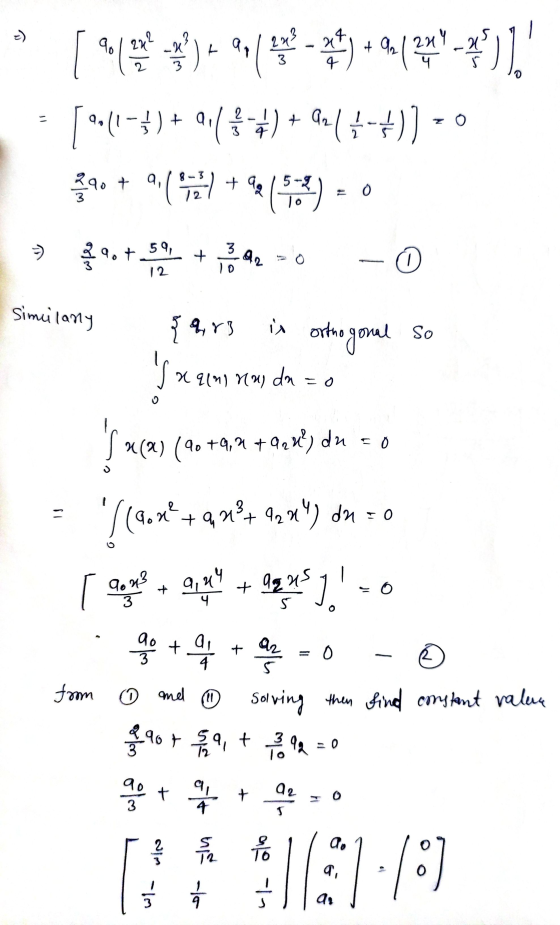 ⇒) [ a₀(2x²/2 - x³/3) + a₁(2x³/3 - x⁴/4) + a₂(2x⁴/4 - x⁵/5) ]₀¹
= [a₀(1 - 1/3) + a₁(2/3 - 1/4) + a₂(1/2 - 1/5)] = 0
2/3 a₀ + a₁(8-3/12) + a₂(5-2/10) = 0
⇒) 2/3 a₀ + 5a₁/12 + 3/10 a₂ = 0 — ①
Similarly {q, r} is orthogonal so
₀∫¹ x q(x) r(x) dx = 0
₀∫¹ x(x) (a₀ + a₁x + a₂x²) dx = 0
= ₀∫¹ (a₀x² + a₁x³ + a₂x⁴) dx = 0
[ a₀x³/3 + a₁x⁴/4 + a₂x⁵/5 ]₀¹ = 0
a₀/3 + a₁/4 + a₂/5 = 0 — ②
from ① and ⑪ solving then find constant value
2/3 a₀ + 5/12 a₁ + 3/10 a₂ = 0
a₀/3 + a₁/4 + a₂/5 = 0
[ 2/3 5/12 3/10 ] ( a₀ ) = ( 0 )
[ 1/3 1/4 1/5 ] ( a₁ a₂ ) ( 0 )